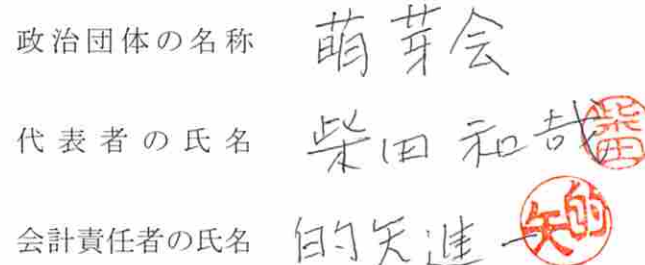 政治団体の名称 萌芽会
代表者の氏名 柴田和哉 柴田
会計責任者の氏名 的矢進一 的矢